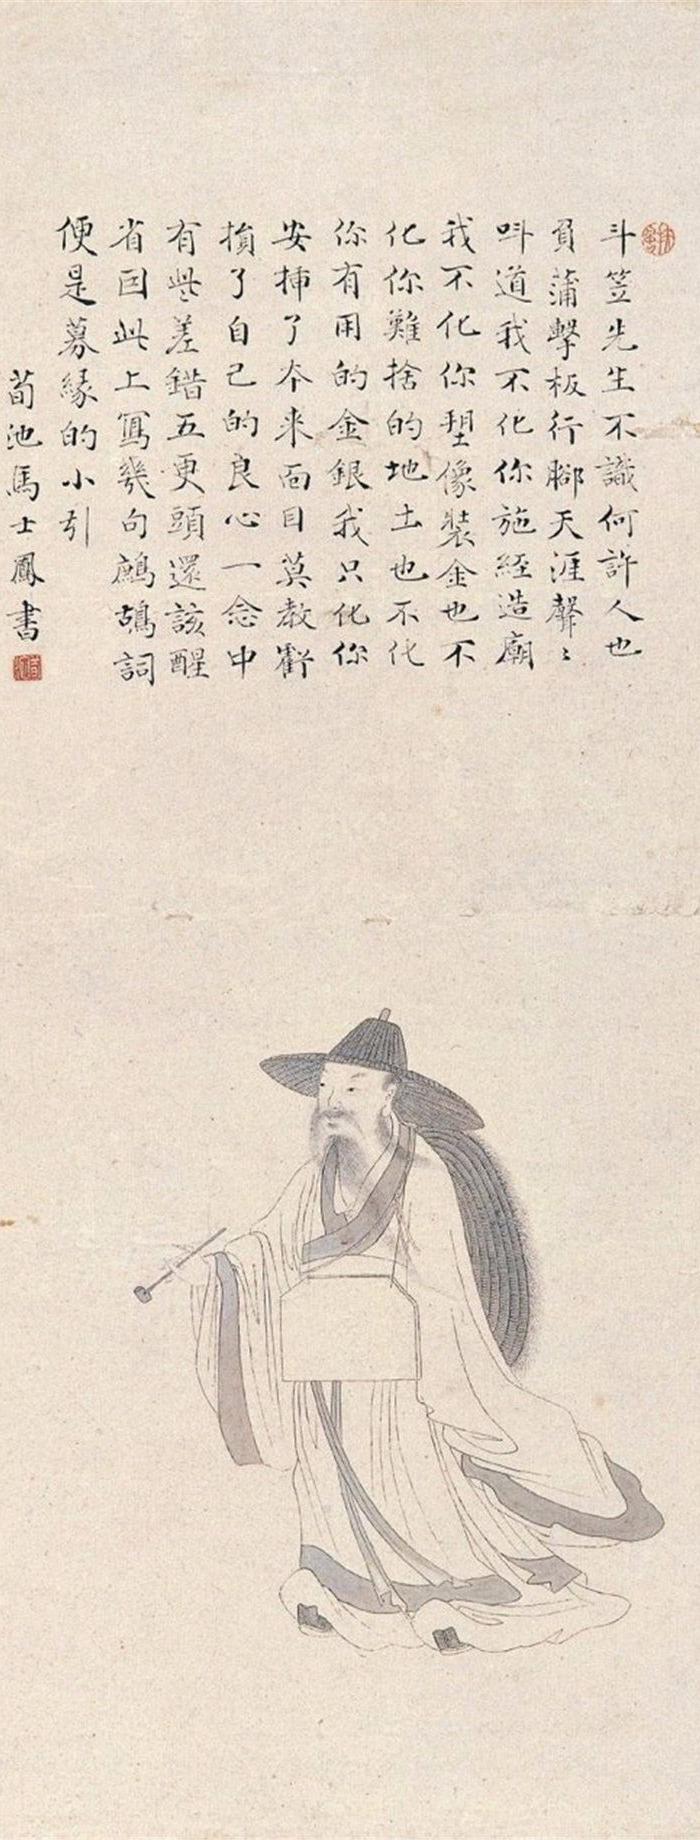 斗笠先生不識何許人也
負蒲擊板行腳天涯聲〻
呌道我不化你施經造廟
我不化你塑像裝金也不
化你難捨的地土也不化
你有用的金銀我只化你
安揷了夲来面目莫教虧
損了自己的良心一念中
有些差錯五更頭還該醒
省因此上寫幾句鷓鴣詞
便是募緣的小引
荀池馬士鳳書